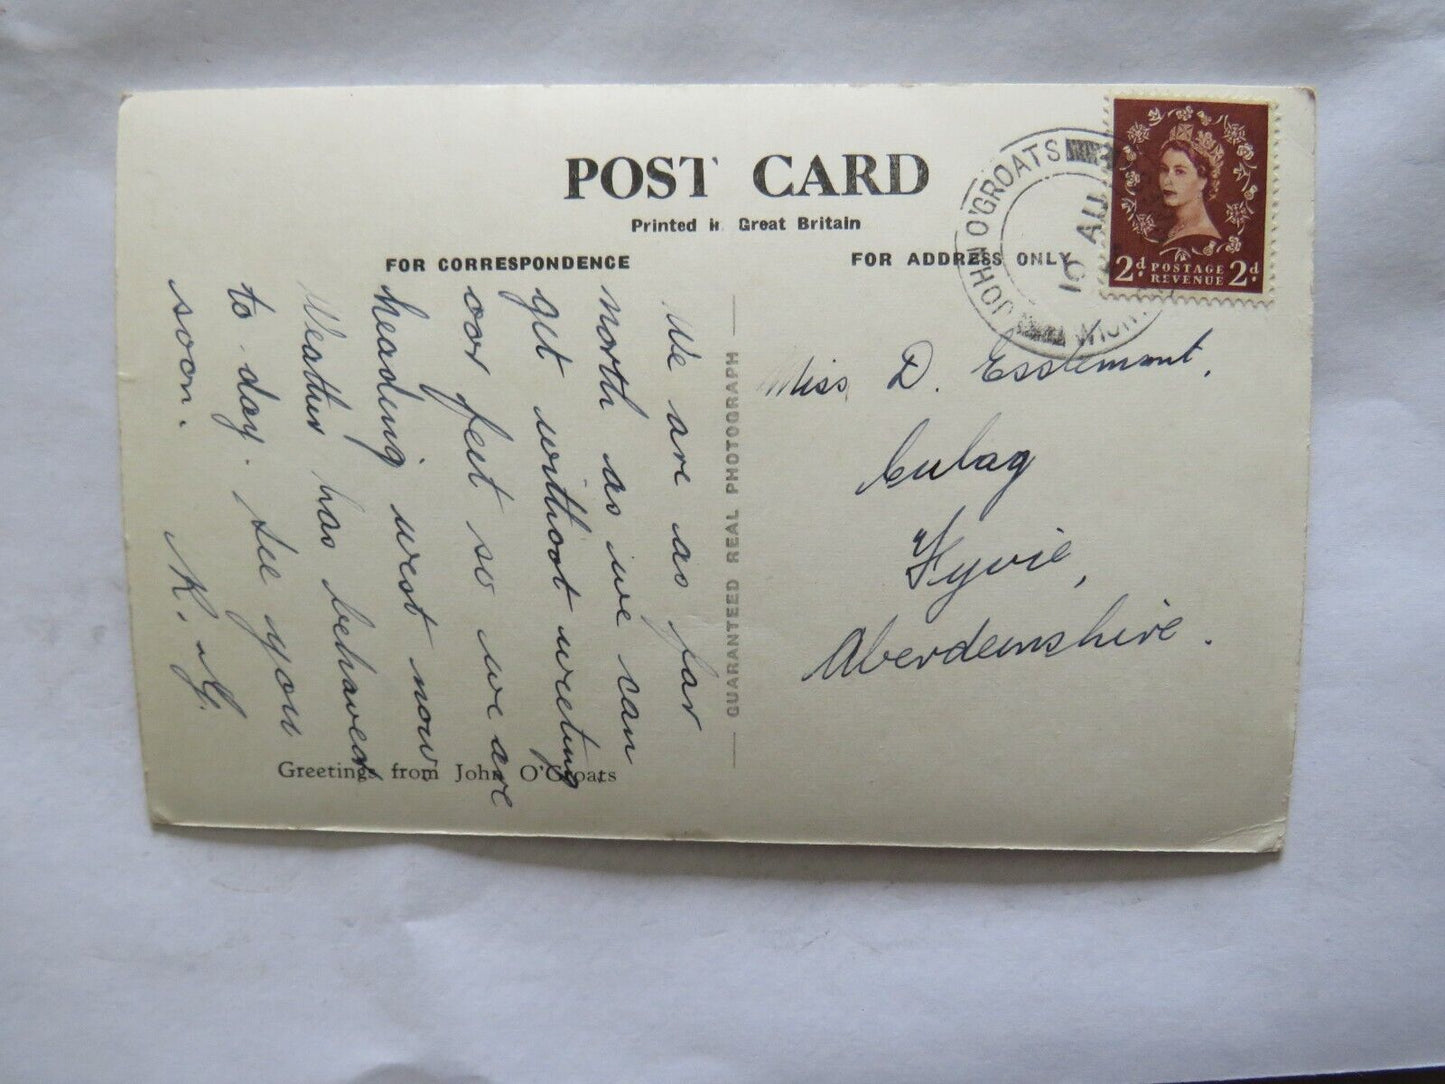 POST CARD
Printed in Great Britain
FOR CORRESPONDENCE
FOR ADDRESS ONLY
JOHN O'GROATS
10 AU
WICK
2d POSTAGE REVENUE 2d
We are as far
north as we can
get without weeting
oor feet so we are
heading west now.
Weather has behaved
to-day. See you
soon.
K. G.
GUARANTEED REAL PHOTOGRAPH
Miss D. Esslemont,
Culag
Fyvie,
Aberdeenshire.
Greetings from John O'Groats